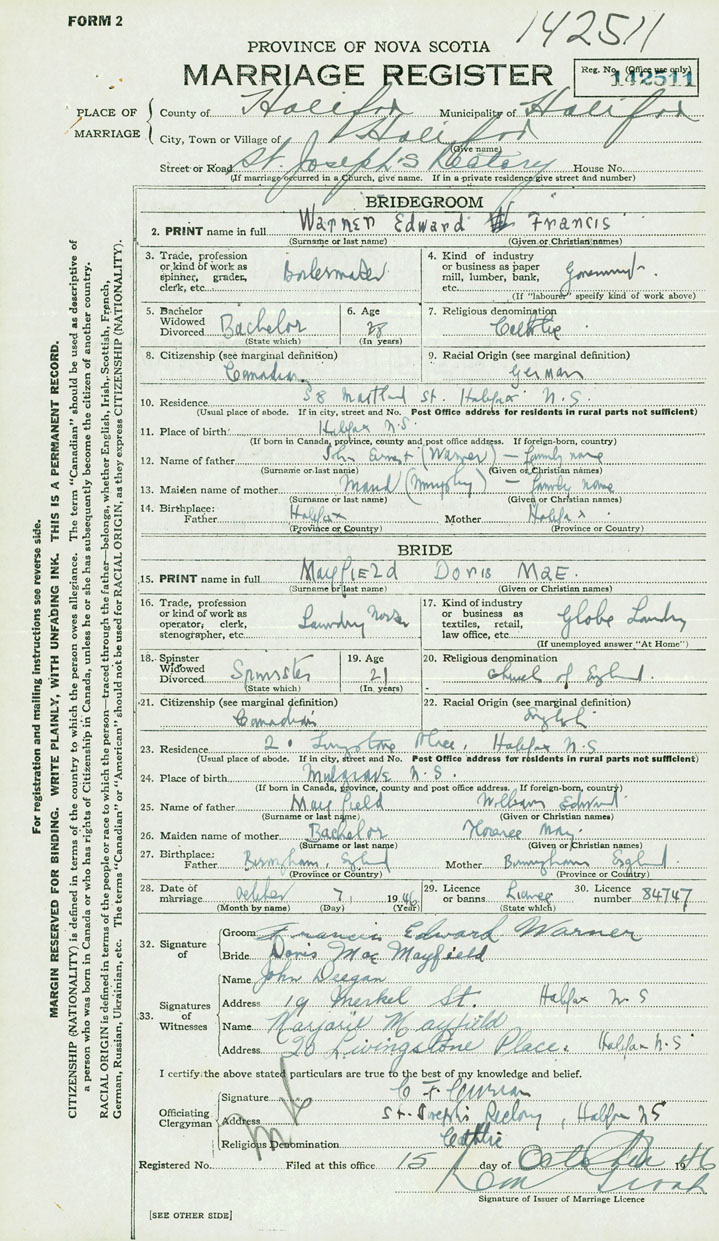 FORM 2
142511
PROVINCE OF NOVA SCOTIA
MARRIAGE REGISTER
Reg. No. (Office use only)
142511
PLACE OF MARRIAGE
County of Halifax Municipality of Halifax
City, Town or Village of Halifax
(Give name)
Street or Road St. Joseph's Rectory House No.
(If marriage occurred in a Church, give name. If in a private residence give street and number)
BRIDEGROOM
2. PRINT name in full Warner Edward Francis
(Surname or last name) (Given or Christian names)
3. Trade, profession or kind of work as spinner, grader, clerk, etc. Boilermaker
4. Kind of industry or business as paper mill, lumber, bank, etc. Government
(If "labourer" specify kind of work above)
5. Bachelor Widowed Divorced Bachelor
(State which)
6. Age 28
(In years)
7. Religious denomination Catholic
8. Citizenship (see marginal definition) Canadian
9. Racial Origin (see marginal definition) German
10. Residence 58 Maitland St. Halifax N.S.
(Usual place of abode. If in city, street and No. Post Office address for residents in rural parts not sufficient)
11. Place of birth Halifax N.S.
(If born in Canada, province, county and post office address. If foreign-born, country)
12. Name of father John Ernest (Warner) — family name
(Surname or last name) (Given or Christian names)
13. Maiden name of mother Maud (Murphy) — family name
(Surname or last name) (Given or Christian names)
14. Birthplace: Father Halifax Mother Halifax
(Province or Country) (Province or Country)
BRIDE
15. PRINT name in full Mayfield Doris Mae.
(Surname or last name) (Given or Christian names)
16. Trade, profession or kind of work as operator, clerk, stenographer, etc. Laundry Work
17. Kind of industry or business as textiles, retail, law office, etc. Globe Landry
(If unemployed answer "At Home")
18. Spinster Widowed Divorced Spinster
(State which)
19. Age 21
(In years)
20. Religious denomination Church of England
21. Citizenship (see marginal definition) Canadian
22. Racial Origin (see marginal definition) English
23. Residence 20 Livingstone Place, Halifax N.S
(Usual place of abode. If in city, street and No. Post Office address for residents in rural parts not sufficient)
24. Place of birth Mulgrave N.S.
(If born in Canada, province, county and post office address. If foreign-born, country)
25. Name of father Mayfield William Edward
(Surname or last name) (Given or Christian names)
26. Maiden name of mother Bachelor Florence May.
(Surname or last name) (Given or Christian names)
27. Birthplace: Father Birmingham, England Mother Birmingham England
(Province or Country) (Province or Country)
28. Date of marriage October 7, 1946
(Month by name) (Day) (Year)
29. Licence or banns Licence
(State which)
30. Licence number 84747
32. Signature of
Groom Francis Edward Warner
Bride Doris Mae Mayfield
33. Signatures of Witnesses
Name John Deegan
Address 19 Merkel St. Halifax N.S
Name Marjorie Mayfield
Address 20 Livingstone Place. Halifax N.S
I certify the above stated particulars are true to the best of my knowledge and belief.
Officiating Clergyman
Signature C F Curran
Address St. Joseph's Rectory, Halifax NS
Religious Denomination Catholic
Registered No. Filed at this office 15 day of October 1946
Signature of Issuer of Marriage Licence
[SEE OTHER SIDE]
For registration and mailing instructions see reverse side.
MARGIN RESERVED FOR BINDING. WRITE PLAINLY, WITH UNFADING INK. THIS IS A PERMANENT RECORD.
CITIZENSHIP (NATIONALITY) is defined in terms of the country to which the person owes allegiance. The term "Canadian" should be used as descriptive of
a person who was born in Canada or who has rights of Citizenship in Canada, unless he or she has subsequently become the citizen of another country.
RACIAL ORIGIN is defined in terms of the people or race to which the person—traced through the father—belongs, whether English, Irish, Scottish, French,
German, Russian, Ukrainian, etc. The terms "Canadian" or "American" should not be used for RACIAL ORIGIN, as they express CITIZENSHIP (NATIONALITY).